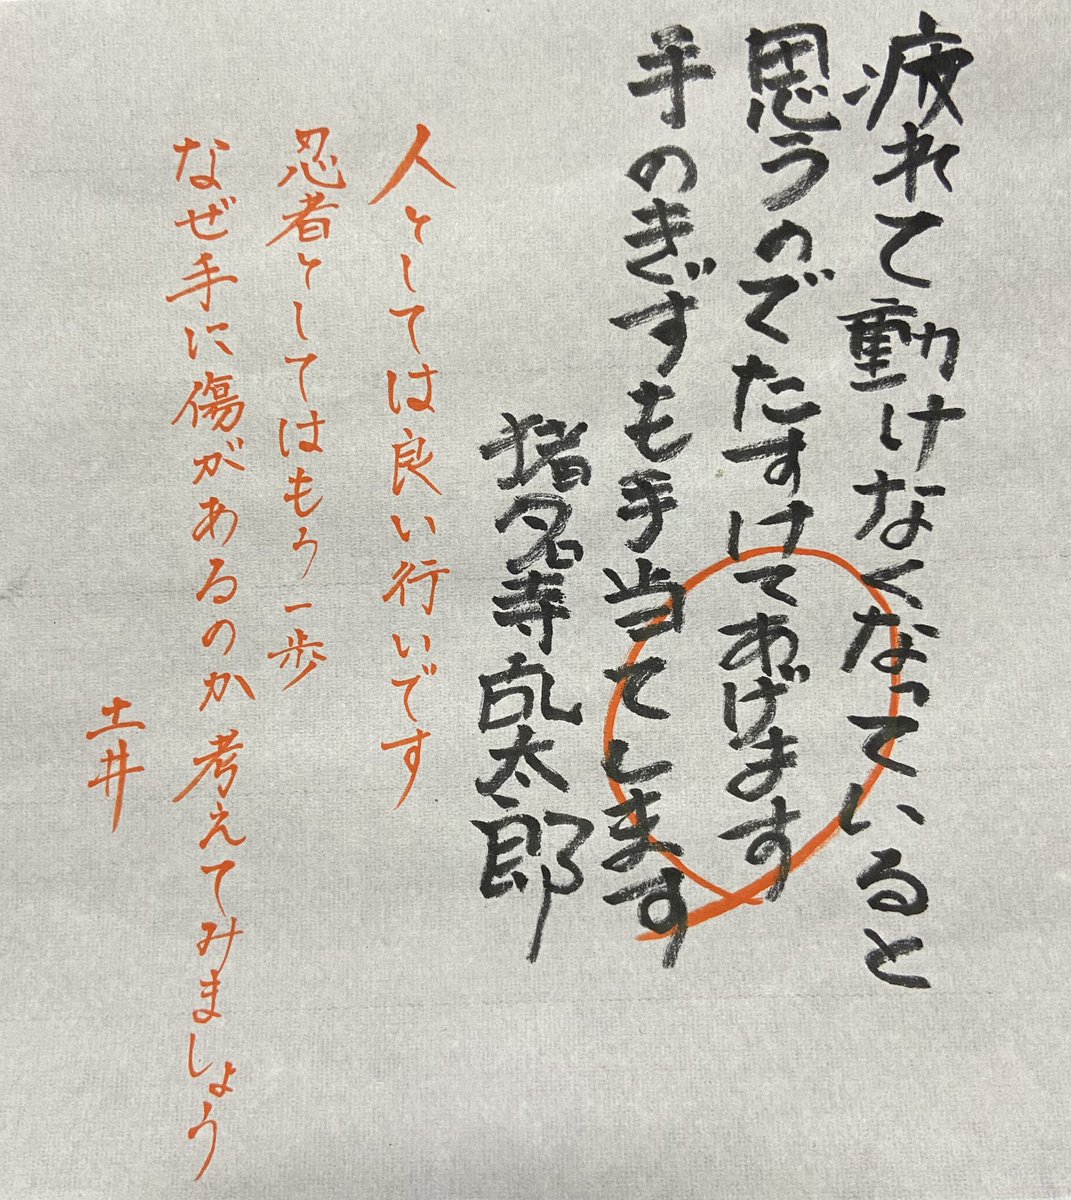 疲れて動けなくなっていると
思うのでたすけてあげます
手のきずも手当てします
猪名寺乱太郎
人としては良い行いです
忍者としてはもう一歩
なぜ手に傷があるのか考えてみましょう
土井